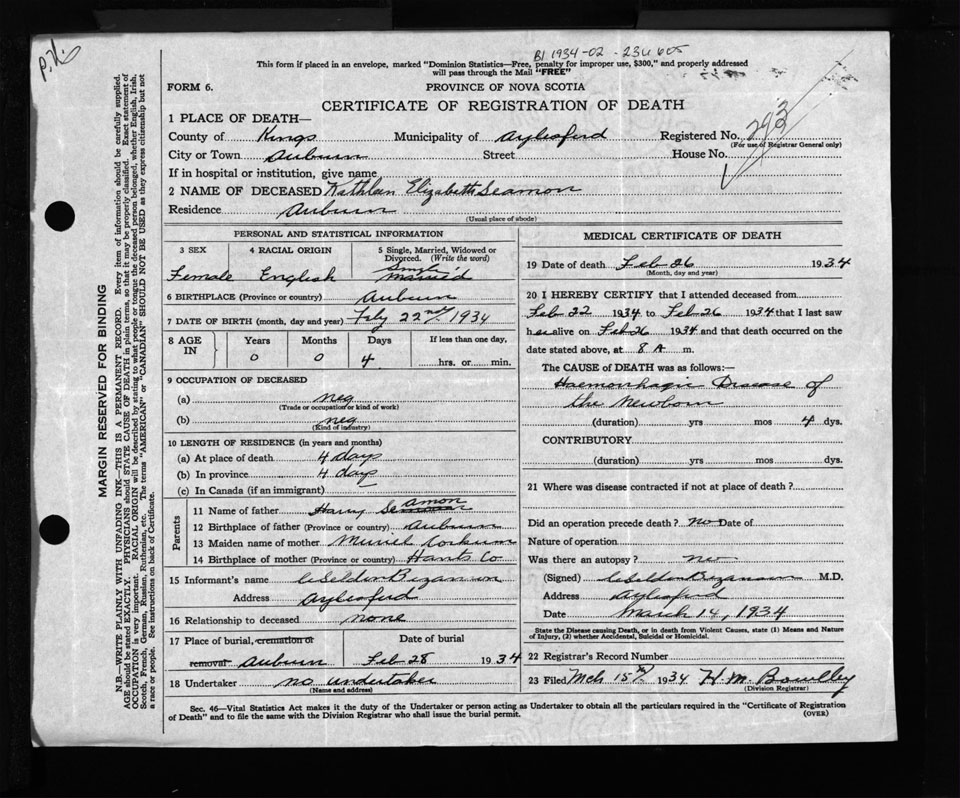 P.X.
B1 1934-02-234605
This form if placed in an envelope, marked "Dominion Statistics—Free, penalty for improper use, $300," and properly addressed
will pass through the Mail "FREE"
FORM 6.
PROVINCE OF NOVA SCOTIA
CERTIFICATE OF REGISTRATION OF DEATH
1 PLACE OF DEATH—
County of Kings Municipality of Aylesford Registered No. 293
(For use of Registrar General only)
City or Town Auburn Street House No.
If in hospital or institution, give name
2 NAME OF DECEASED Kathleen Elizabeth Seamon
Residence Auburn
(Usual place of abode)
PERSONAL AND STATISTICAL INFORMATION
3 SEX 4 RACIAL ORIGIN 5 Single, Married, Widowed or
Divorced. (Write the word)
Female English Single
Married
6 BIRTHPLACE (Province or country) Auburn
7 DATE OF BIRTH (month, day and year) Feby 22nd 1934
8 AGE IN Years Months Days If less than one day,
0 0 4 hrs. or min.
9 OCCUPATION OF DECEASED
(a) neg
(Trade or occupation or kind of work)
(b) neg
(Kind of industry)
10 LENGTH OF RESIDENCE (in years and months)
(a) At place of death 4 days
(b) In province 4 days
(c) In Canada (if an immigrant)
Parents
11 Name of father Harry Seamon
12 Birthplace of father (Province or country) Auburn
13 Maiden name of mother Muriel Corkum
14 Birthplace of mother (Province or country) Hants Co
15 Informant's name C Seldon Bezanson
Address Aylesford
16 Relationship to deceased none
17 Place of burial, cremation or Date of burial
removal Auburn Feb 28 1934
18 Undertaker no undertaker
(Name and address)
MEDICAL CERTIFICATE OF DEATH
19 Date of death Feb 26 1934
(Month, day and year)
20 I HEREBY CERTIFY that I attended deceased from
Feb 22 1934 to Feb 26 1934 that I last saw
her alive on Feb 26 1934 and that death occurred on the
date stated above, at 8 A m.
The CAUSE OF DEATH was as follows:—
Haemorrhagic Disease of
the Newborn
(duration) yrs mos 4 dys.
CONTRIBUTORY
(duration) yrs mos dys.
21 Where was disease contracted if not at place of death?
Did an operation precede death? no Date of
Nature of operation
Was there an autopsy? no
(Signed) C Seldon Bezanson M.D.
Address Aylesford
Date March 14, 1934
State the Disease causing Death, or in death from Violent Causes, state (1) Means and Nature
of Injury, (2) whether Accidental, Suicidal or Homicidal.
22 Registrar's Record Number
23 Filed Mch 15th 1934 H. M.
(Division Registrar)
Sec. 46—Vital Statistics Act makes it the duty of the Undertaker or person acting as Undertaker to obtain all the particulars required in the "Certificate of Registration
of Death" and to file the same with the Division Registrar who shall issue the burial permit. (OVER)
MARGIN RESERVED FOR BINDING
N.B.—WRITE PLAINLY WITH UNFADING INK—THIS IS A PERMANENT RECORD. Every item of information should be carefully supplied.
AGE should be stated EXACTLY. PHYSICIANS should STATE CAUSE OF DEATH in plain terms, so that it may be properly classified. Exact statement of
OCCUPATION is very important. RACIAL ORIGIN will be described by stating to what people or tongue the deceased person belonged, whether English, Irish,
Scotch, French, German, Russian, Ruthenian, etc. The terms "AMERICAN" or "CANADIAN" SHOULD NOT BE USED as they express citizenship but not
a race or people. See instructions on back of Certificate.